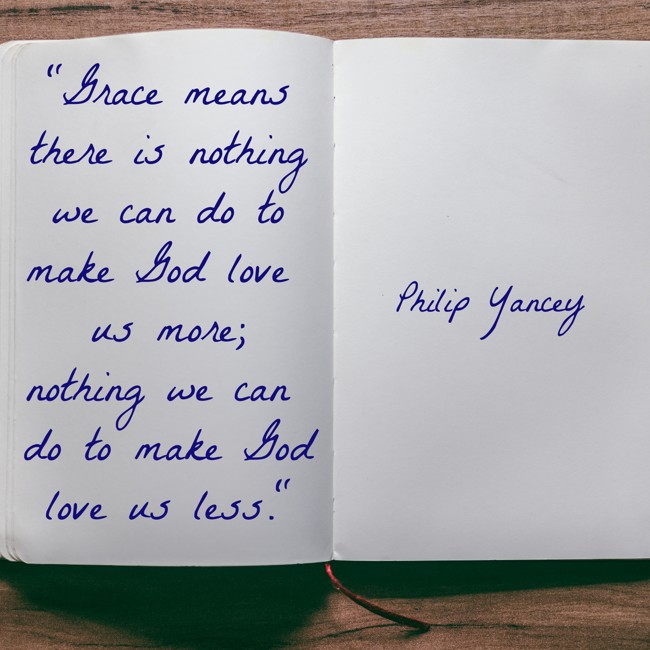 "Grace means
there is nothing
we can do to
make God love
us more;
nothing we can
do to make God
love us less."
Philip Yancey